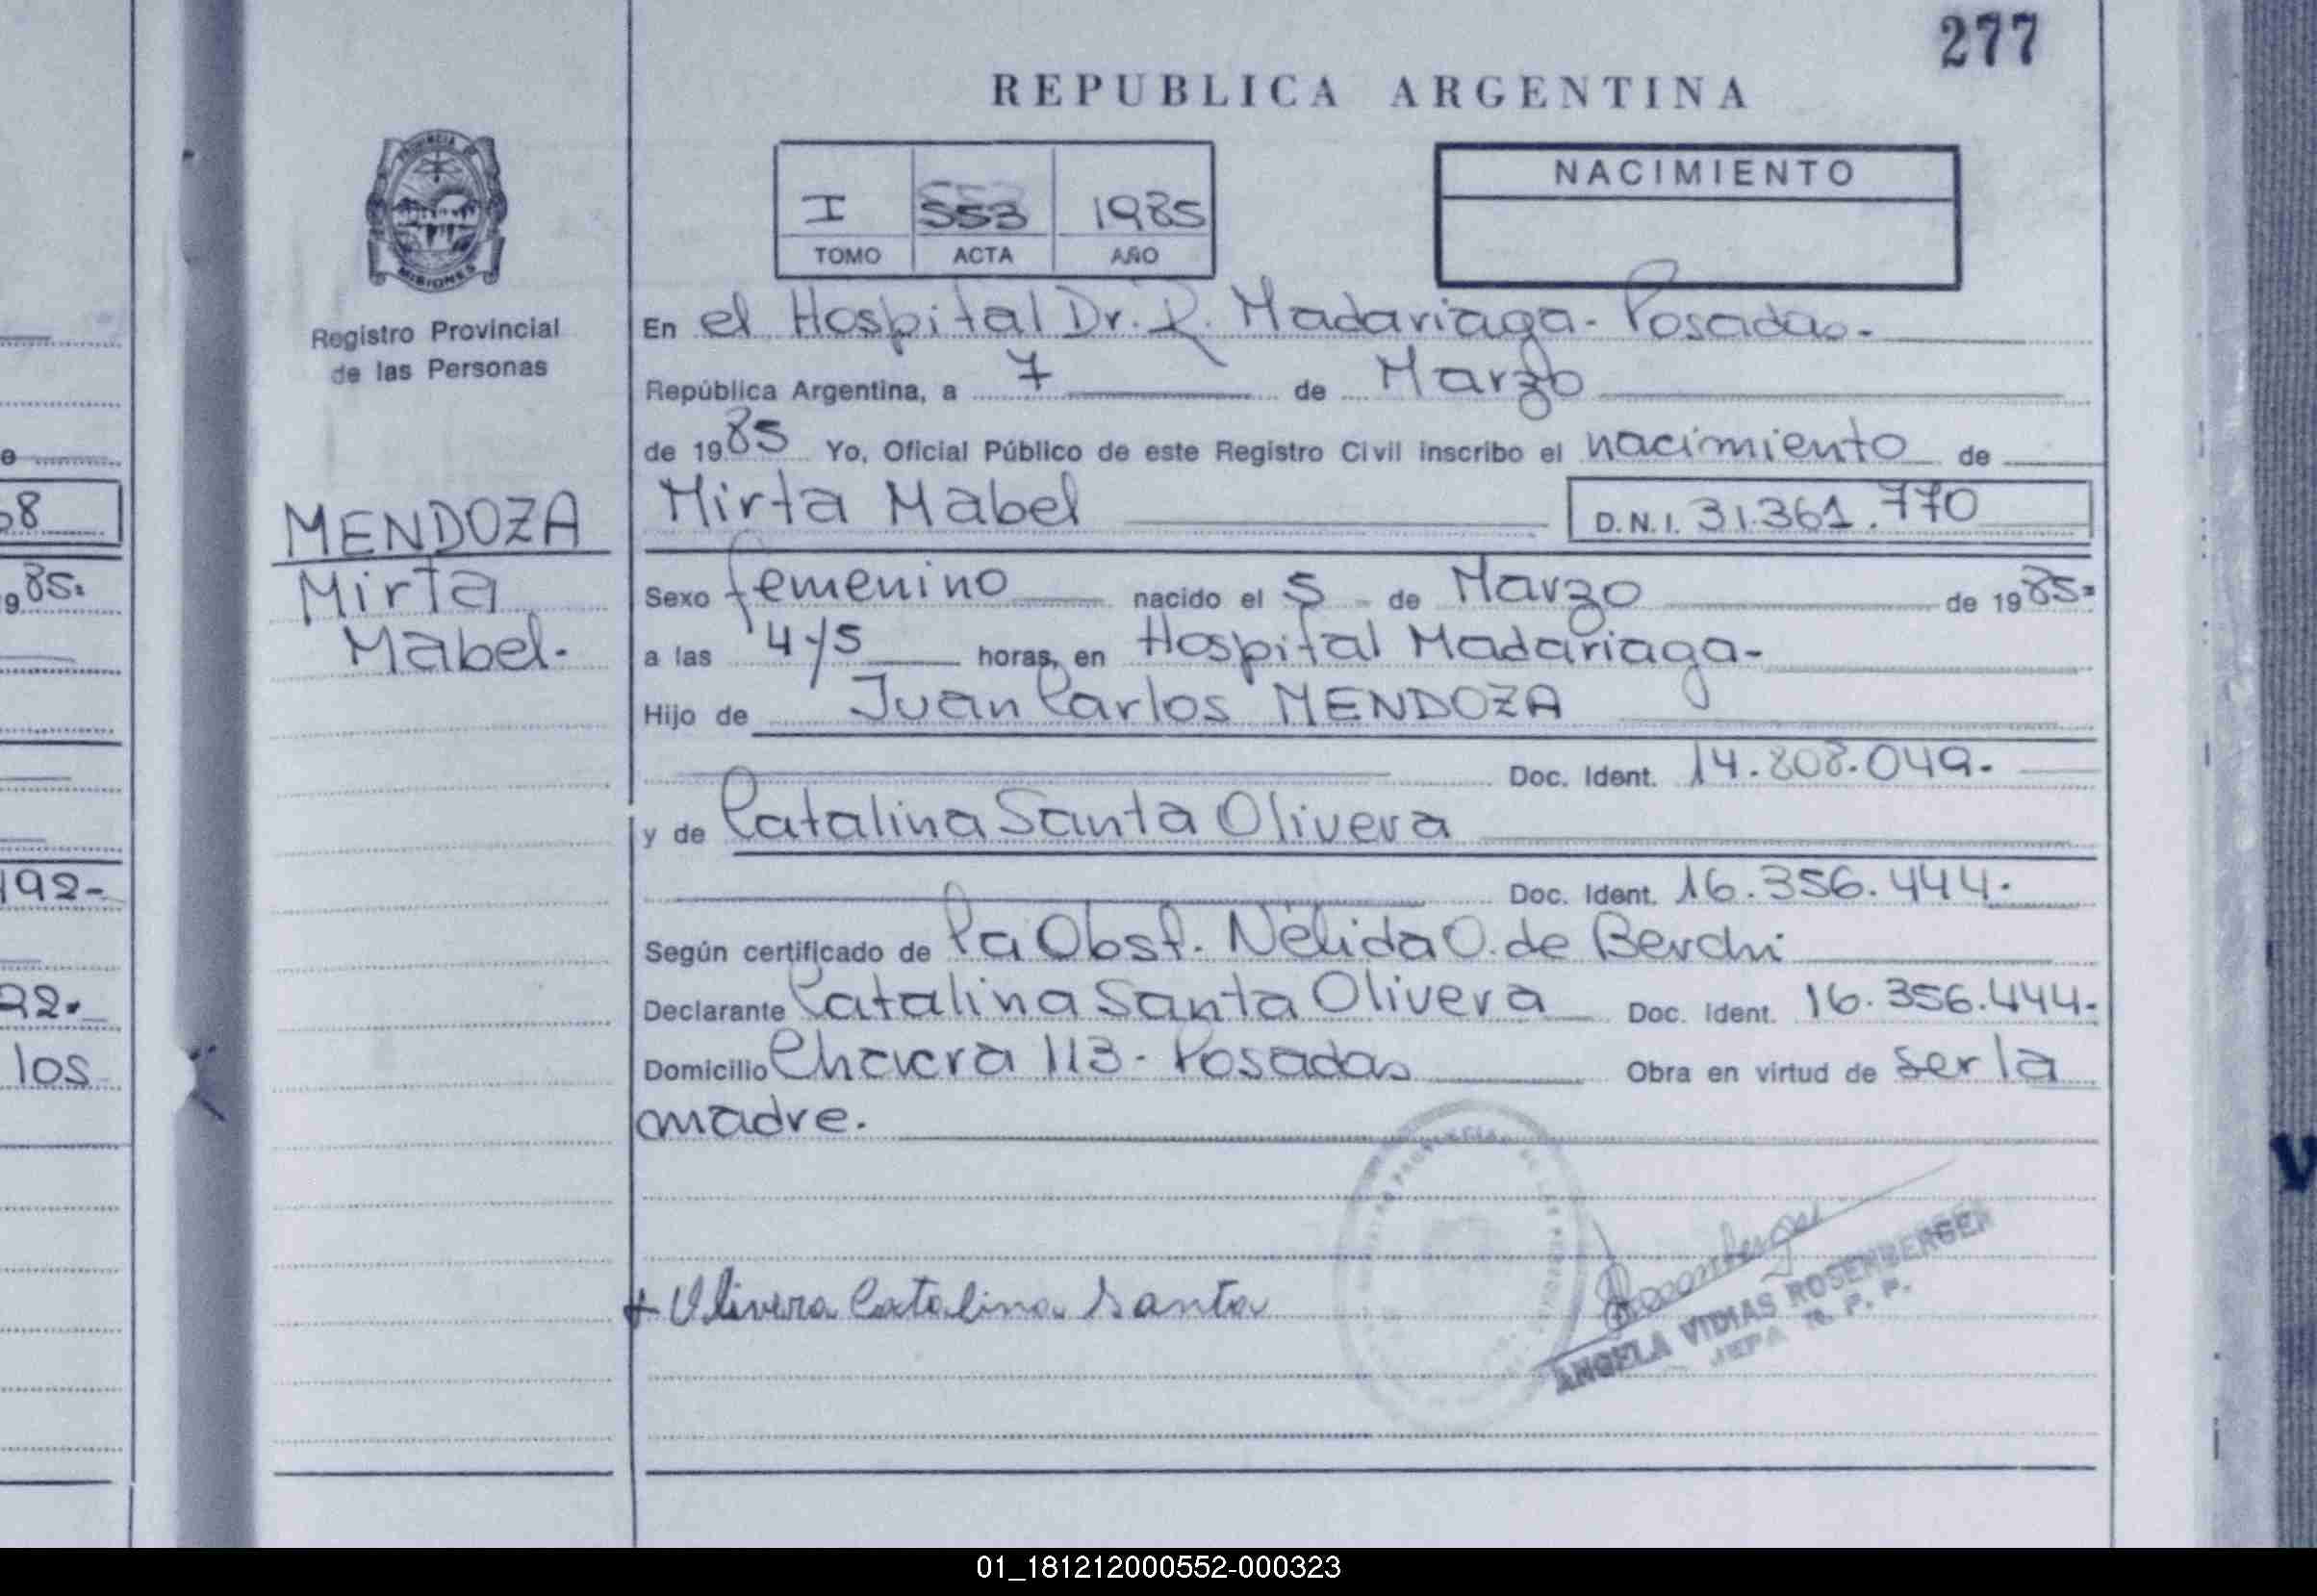 277
REPUBLICA ARGENTINA
PROVINCIA DE
MISIONES
Registro Provincial
de las Personas
I 553 1985
TOMO ACTA AÑO
NACIMIENTO
En el Hospital Dr. R. Madariaga - Posadas -
República Argentina, a 7 de Marzo
de 1985 Yo, Oficial Público de este Registro Civil inscribo el nacimiento de
Mirta Mabel D.N.I. 31.361.770
MENDOZA
Mirta
Mabel.
Sexo femenino nacido el 5 de Marzo de 1985=
a las 4-/5 horas, en Hospital Madariaga-
Hijo de Juan Carlos MENDOZA
Doc. Ident. 14.808.049.
y de Catalina Santa Olivera
Doc. Ident. 16.356.444.
Según certificado de la Obst. Nélida O. de Berchi
Declarante Catalina Santa Olivera Doc. Ident. 16.356.444.
Domicilio Chacra 113 - Posadas Obra en virtud de ser la
madre.
+ Olivera Catalina Santa
ANGELA VIDIAS ROSENBERGER
JEFA R. P. P.
68
985=
192-
22.
los
01_181212000552-000323